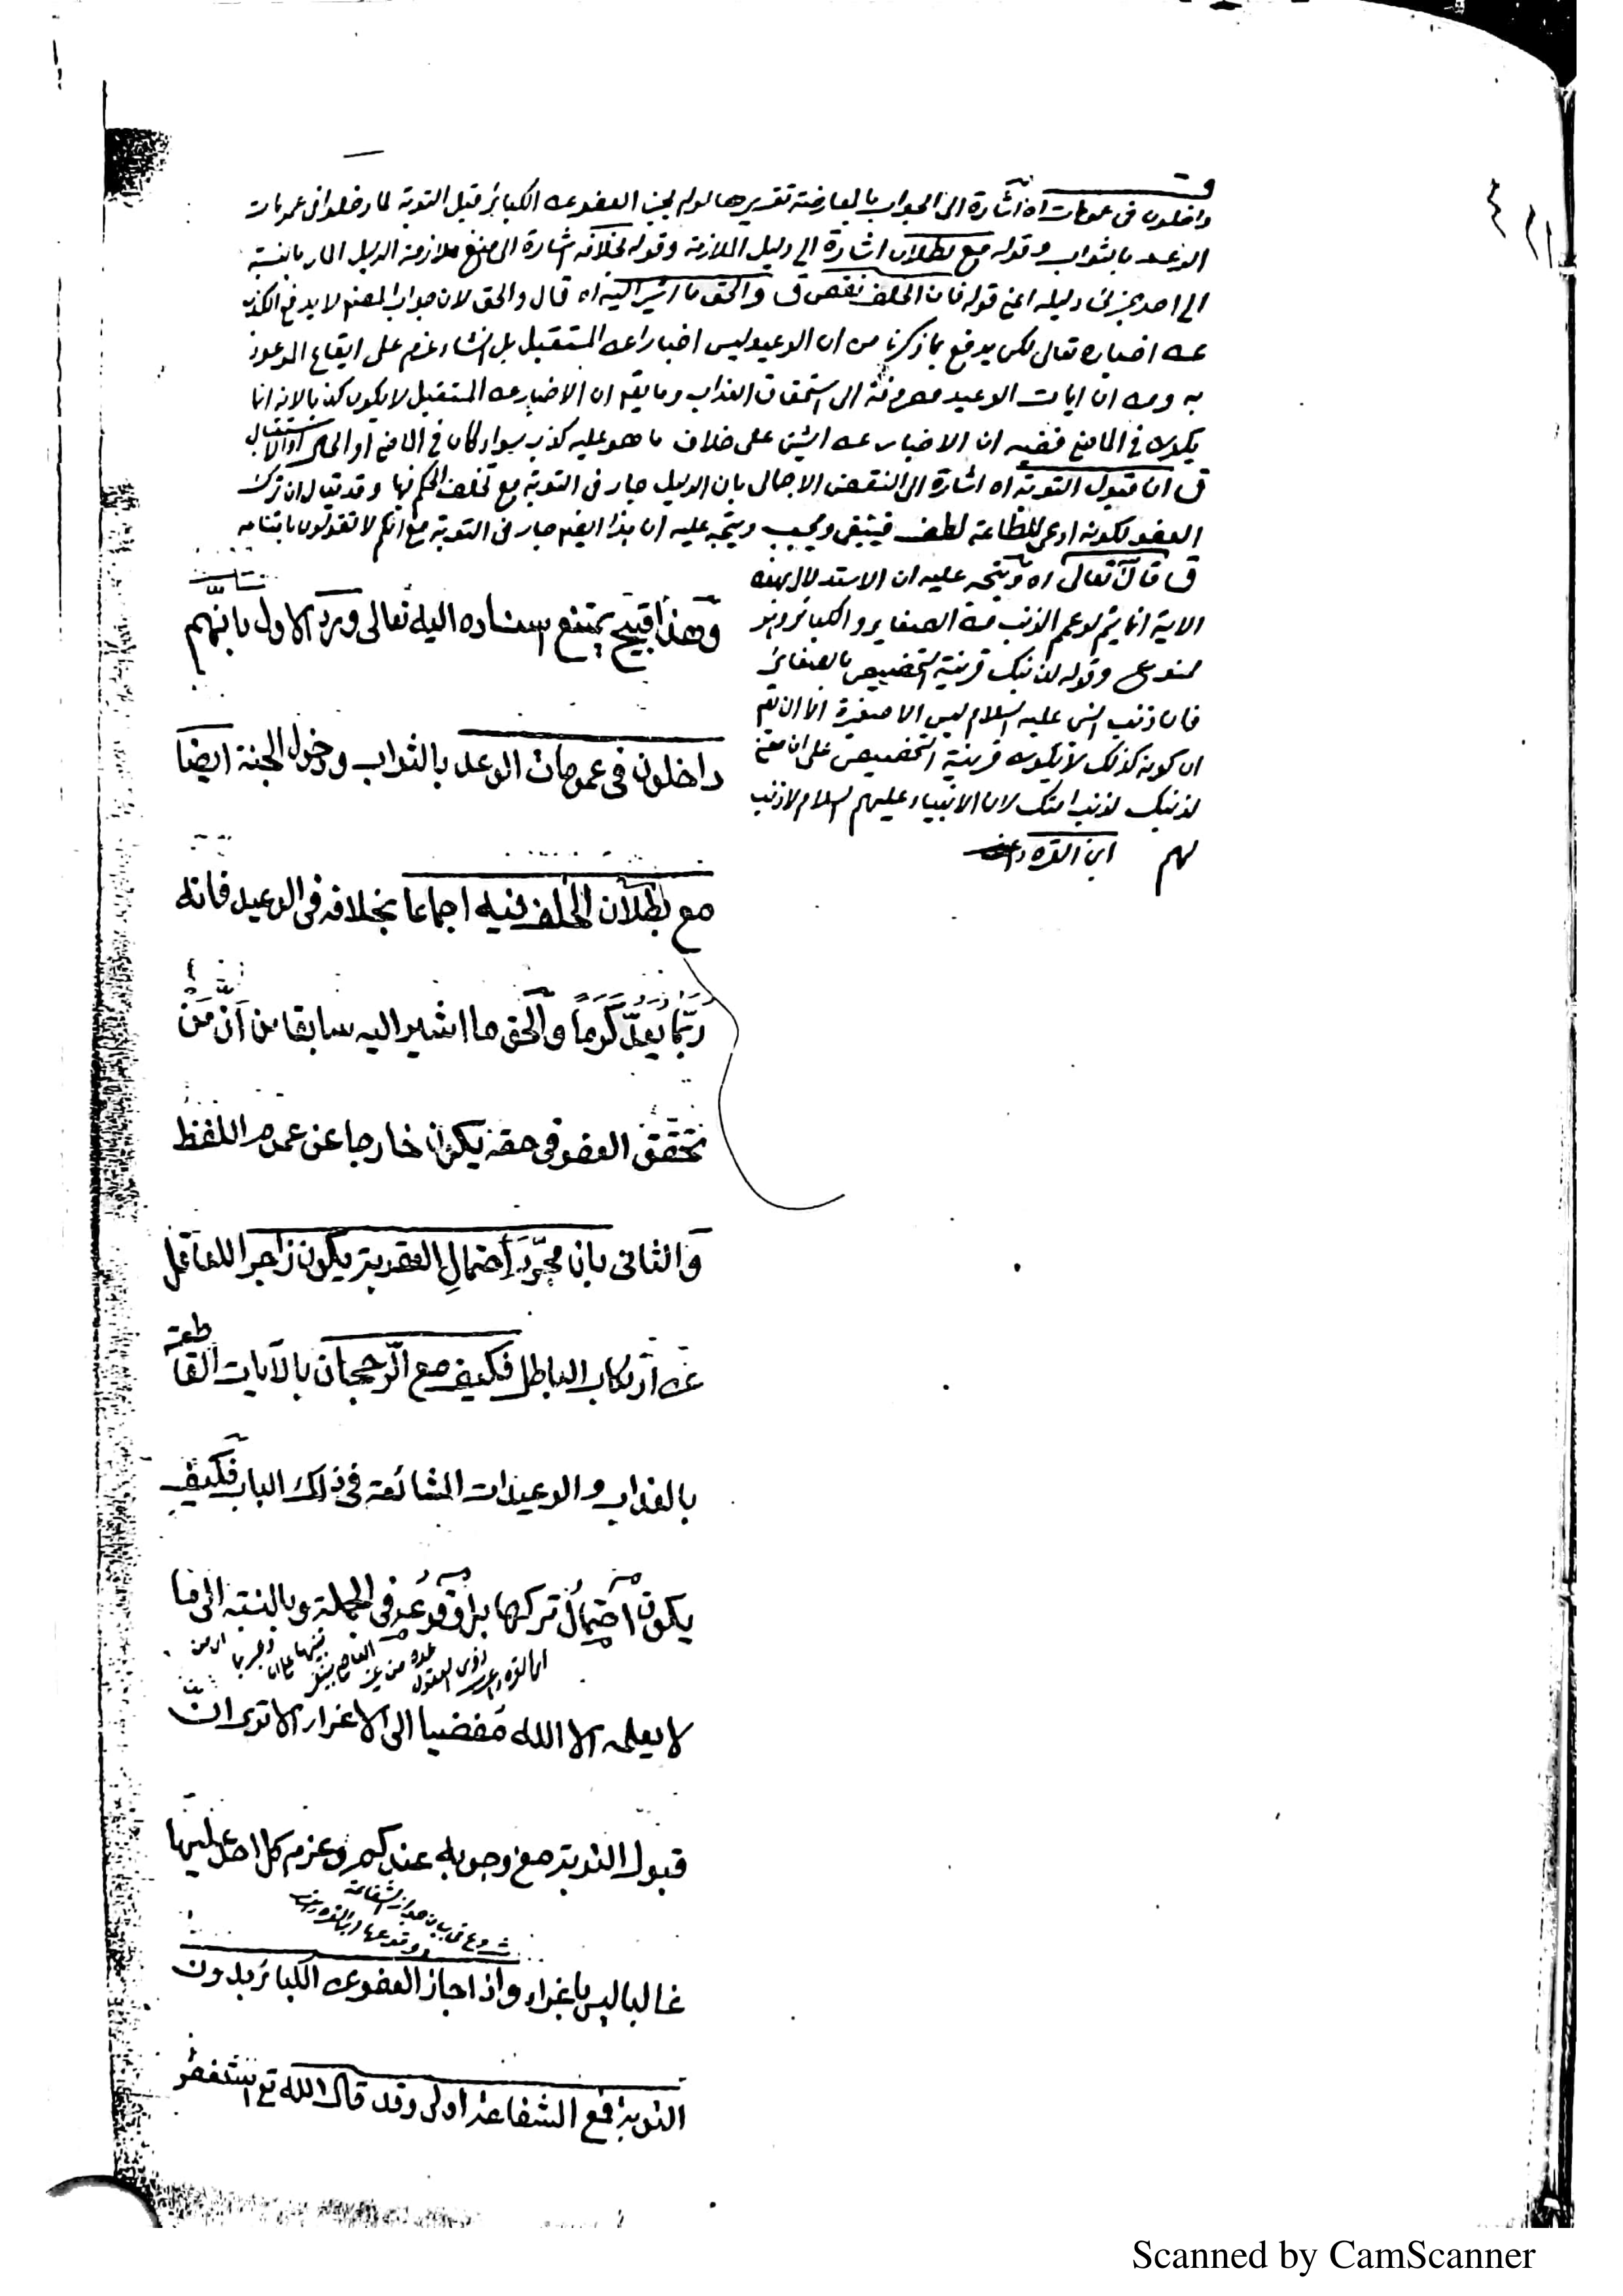 داخلون فى عمومات اه اشارة الى الجواب بالمعارضة تقريرها لو لم يجز العفو عن الكبائر قبل التوبة لما دخلوا فى عمومات
الوعد بالثواب وقوله مع بطلان اشارة الى دليل الملازمة وقوله بخلافه اشارة الى منع ملازمة الدليل المار بالنسبة
الى احد جزئى دليله اعنى قوله فان الخلف نقص ق والحق ما اشير اليه اه قال والحق لان جواب المص لا يدفع الكذب
عن اخباره تعالى لكن يدفع بما ذكرنا من ان الوعيد ليس اخبارا عن المستقبل بل انشاء عزم على ايقاع الموعود
به ومن ان ايات الوعيد مصروفة الى استحقاق العذاب وما يقم ان الاخبار عن المستقبل لا يكون كذبا لانه انما
يكون فى الماضى ففيه ان الاخبار عن الشئ على خلاف ما هو عليه كذب سواء كان فى الماضى او الحال او الاستقبال
ق ان قبول التوبة اه اشارة الى النقض الاجمالى بان الدليل جار فى التوبة مع تخلف الحكم فيها وقد يقال ان ترك
العفو لكونه ادعى للطاعة لطف فينبغى ويجب ويتجه عليه ان هذا ايضا جار فى التوبة مع انكم لا تقولون بامتناعه
ق قال تعالى اه ويتجه عليه ان الاستدلال بهذه
الاية انما يتم لو عم الذنب من الصغاير والكبائر وهو
ممنوع وقوله لذنبك قرينة التخصيص بالصغائر
فان ذنب النبى عليه السلام ليس الا صغيرة الا ان يقم
ان كونه كذلك لا يكون قرينة التخصيص على ان معنى
لذنبك لذنب امتك لان الانبياء عليهم السلام لا ذنب
لهم ابن القره داغى
وهذا قبيح يمتنع اسناده اليه تعالى ورد الاول بانهم
داخلون فى عمومات الوعد بالثواب ودخول الجنة ايضا
مع بطلان الخلف فيه اجماعا بخلافه فى الوعيد فانه
ربّما يُعدّ كَرَمًا والحق ما اشير اليه سابقا من اَنّ مَنْ
تحقق العفو فى حقه يكون خارجا عن عموم اللفظ
والثانى بان مجرّد احتمالِ العقوبة يكون زاجرا للعاقل
عن ارتكاب الباطل فكيف مع الرّجحان بالآيات القاطعة
بالعذاب والوعيدات الشائعة فى ذلك الباب فكيف
يكون احتمالُ تركها بل وقوعُه فى الجملة وبالنسبة الى ما
لا يعلمه الا الله مُفضيا الى الاغراء الا ترى انّ
قبول التوبة مع وجوبه عندكم وعزم كل احد عليها
شروع فى بيان جواز الشفاعة
ووقوعها ابن القره داغى
غالبا ليس باغراء واذا جاز العفو عن الكبائر بدون
التوبة فمع الشفاعة اولى وقد قال الله تع استغفر
Scanned by CamScanner